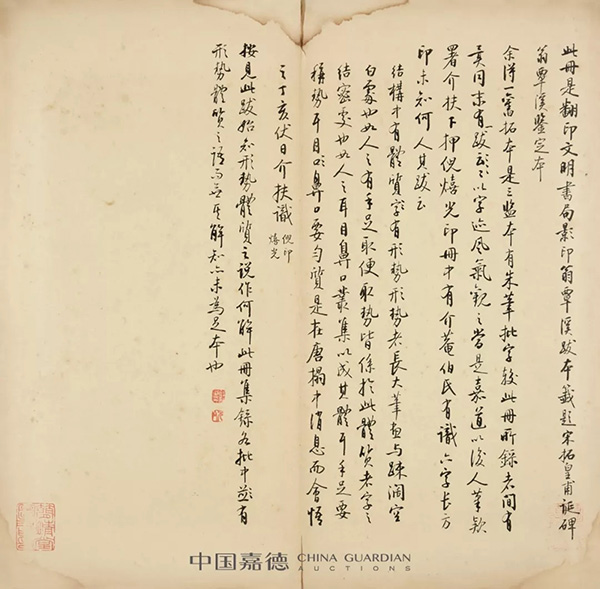 此冊是翻印文明書局影印翁覃溪跋本籤題宋拓皇甫誕碑
翁覃溪鑒定本
余得一舊拓本是三監本有朱筆批字較此冊所錄者間有
異同末有跋以字迹風氣觀之當是嘉道以後人筆款
署介扶下押倪熺光印冊中有介菴伯氏有識六字長方
印未知何人其跋云
結構中有體質字有形勢形勢者長大筆畫与疎濶空
白處也如人之有手足取便取勢皆係於此體質者字之
結密處也如人之耳目鼻口叢集以成其體耳手足要
穉勢耳目鼻口要勻質是在唐搨中消息而會悟
之丁亥伏日介扶識
倪印
熺光
按見此跋始知形勢體質之說作何解此冊集錄各批中並有
形勢體質之語而無其解知亦未為足本也
中国嘉德 CHINA GUARDIAN
AUCTIONS